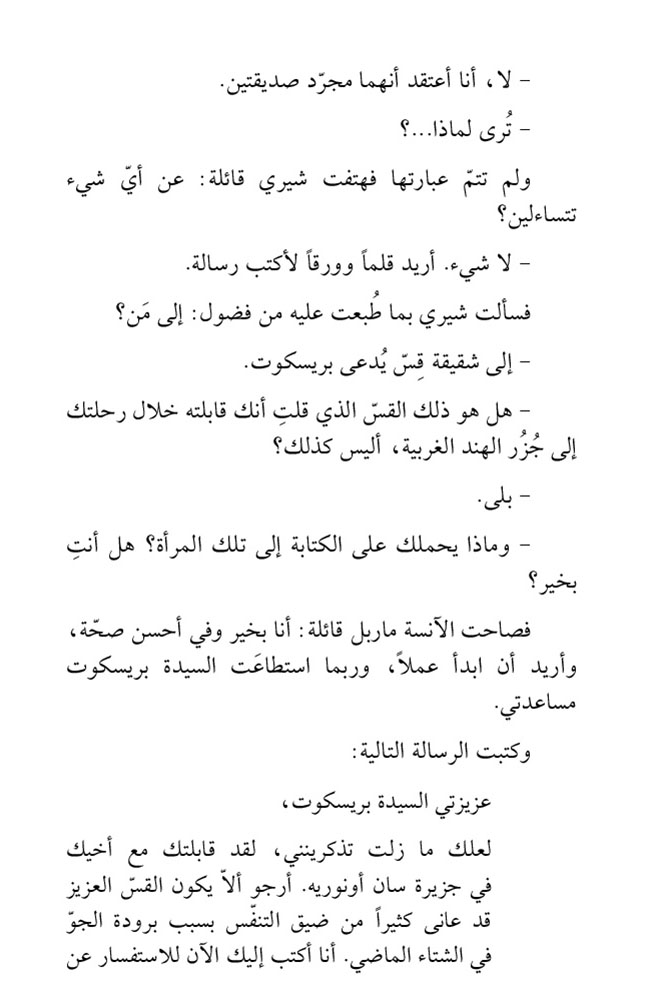 – لا، أنا أعتقد أنهما مجرّد صديقتين.
– تُرى لماذا...؟
ولم تتمّ عبارتها فهتفت شيري قائلة: عن أيّ شيء
تتساءلين؟
– لا شيء. أريد قلماً وورقاً لأكتب رسالة.
فسألت شيري بما طُبعت عليه من فضول: إلى مَن؟
– إلى شقيقة قِسّ يُدعى بريسكوت.
– هل هو ذلك القسّ الذي قلتِ أنك قابلته خلال رحلتك
إلى جُزُر الهند الغربية، أليس كذلك؟
– بلى.
– وماذا يحملك على الكتابة إلى تلك المرأة؟ هل أنتِ
بخير؟
فصاحت الآنسة ماربل قائلة: أنا بخير وفي أحسن صحّة،
وأريد أن ابدأ عملاً، وربما استطاعَت السيدة بريسكوت
مساعدتي.
وكتبت الرسالة التالية:
عزيزتي السيدة بريسكوت،
لعلك ما زلت تذكرينني، لقد قابلتك مع أخيك
في جزيرة سان أونوريه. أرجو ألاّ يكون القسّ العزيز
قد عانى كثيراً من ضيق التنفّس بسبب برودة الجوّ
في الشتاء الماضي. أنا أكتب إليك الآن للاستفسار عن